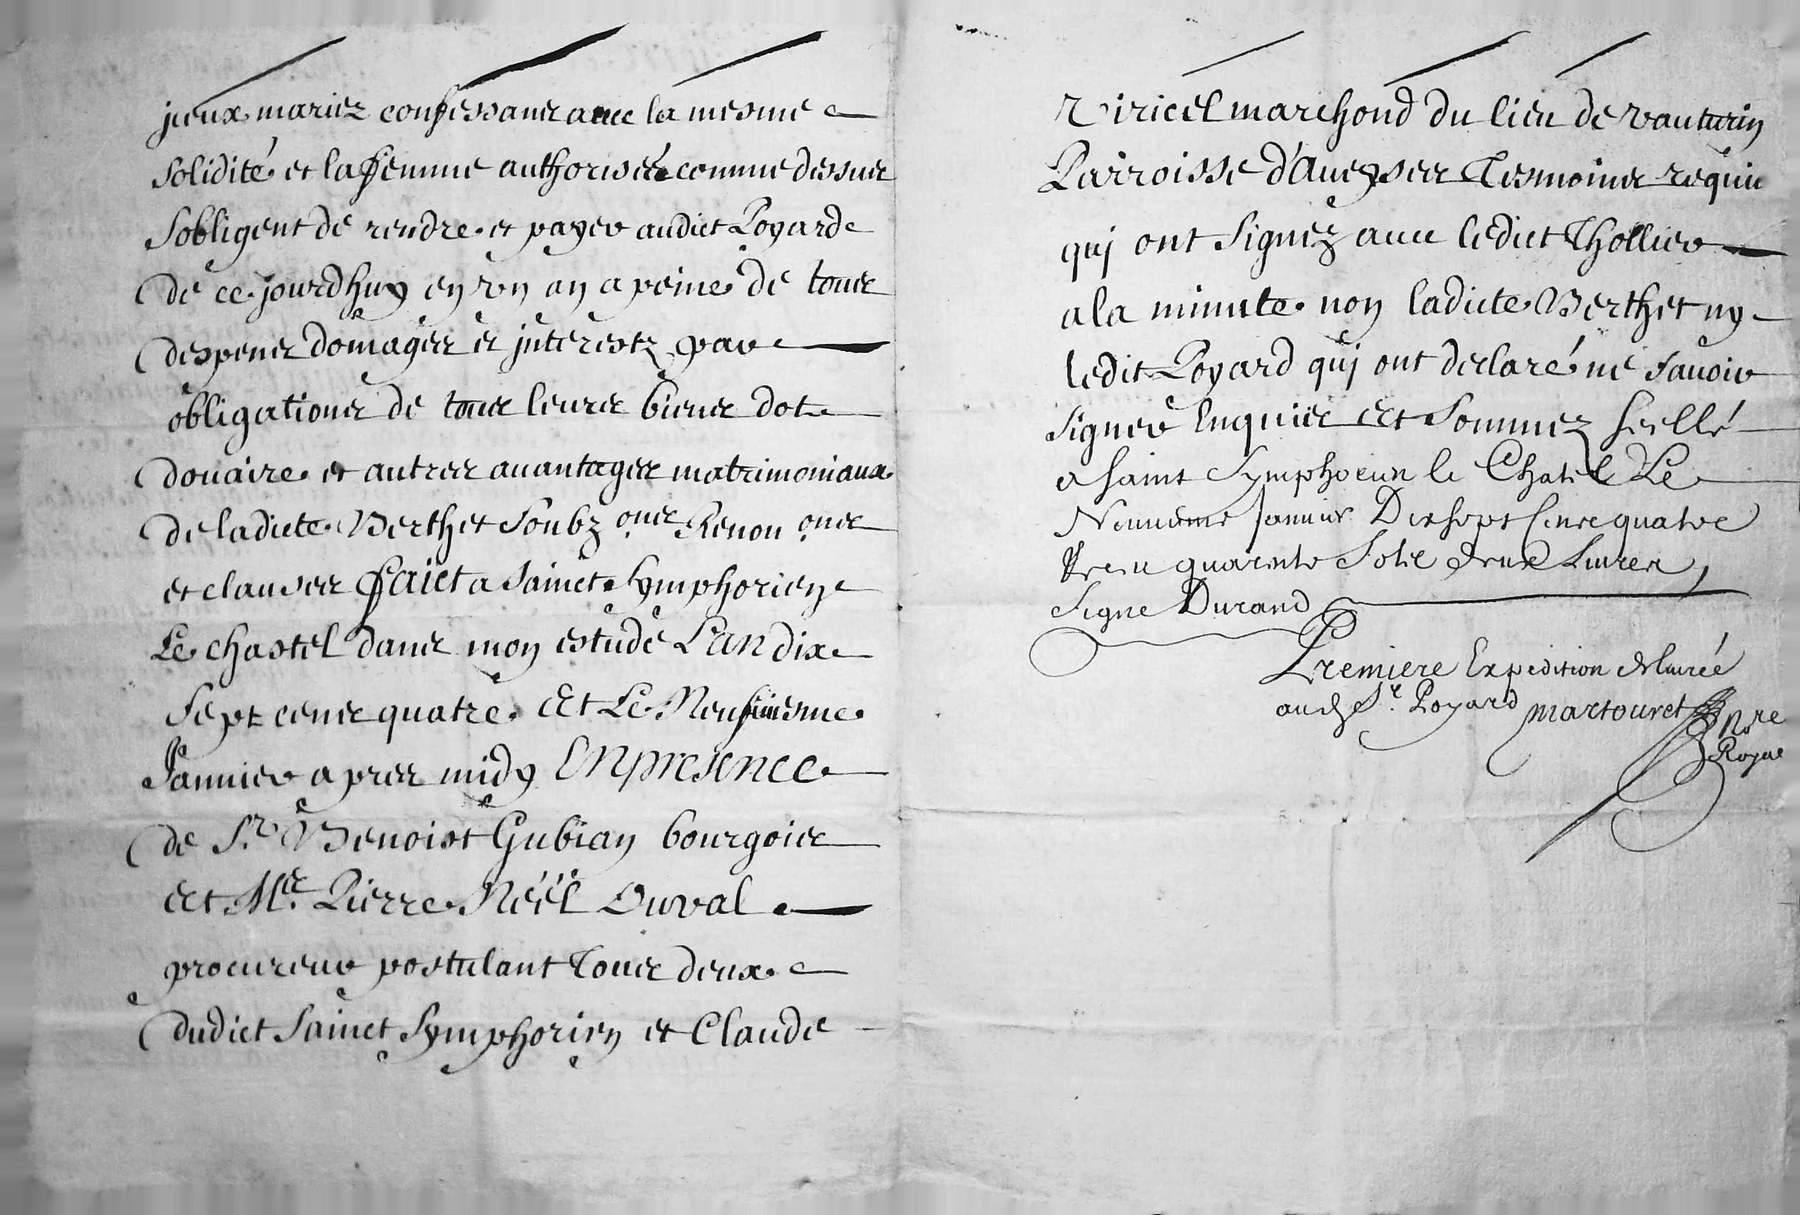 jceux mariez confessans avec la mesme
solidité et la femme authorisée comme dessus
sobligent de rendre et payer audict Poyard
de ce jourdhuy en vn an a peine de tous
despens domages et jnterestz par
obligations de tous leurs biens dot
douaire et autres auantages matrimoniaux
de ladicte Berthet soubz ons Renon ons
et clauses faict a sainct symphorien
Le chastel dans mon estude L'an dix
sept cens quatre Et Le Neufuiesme
Januier apres midy EN presence
de Sr. Benoist Gubian bourgois
et Me. Pierre Néël Duval
procureur postulant Tous deux
dudict sainct symphorien et Claude
Viricel marchand du lieu de vauturin
Parroisse d'Aueyses Tesmoins requis
quj ont signez auec ledict Thollier
a la minute non ladicte Berthet ny
ledit Poyard quj ont declaré ne sauoir
signer Enquis et sommez scellé
a saint symphorien le Chatel Le
Neuuieme januier Dix sept Cens quatre
Receu quarente sols deux Liures
signe Durand
Premiere Expedition deliurée
aud. Sr. Poyard martouret Nre
Royal